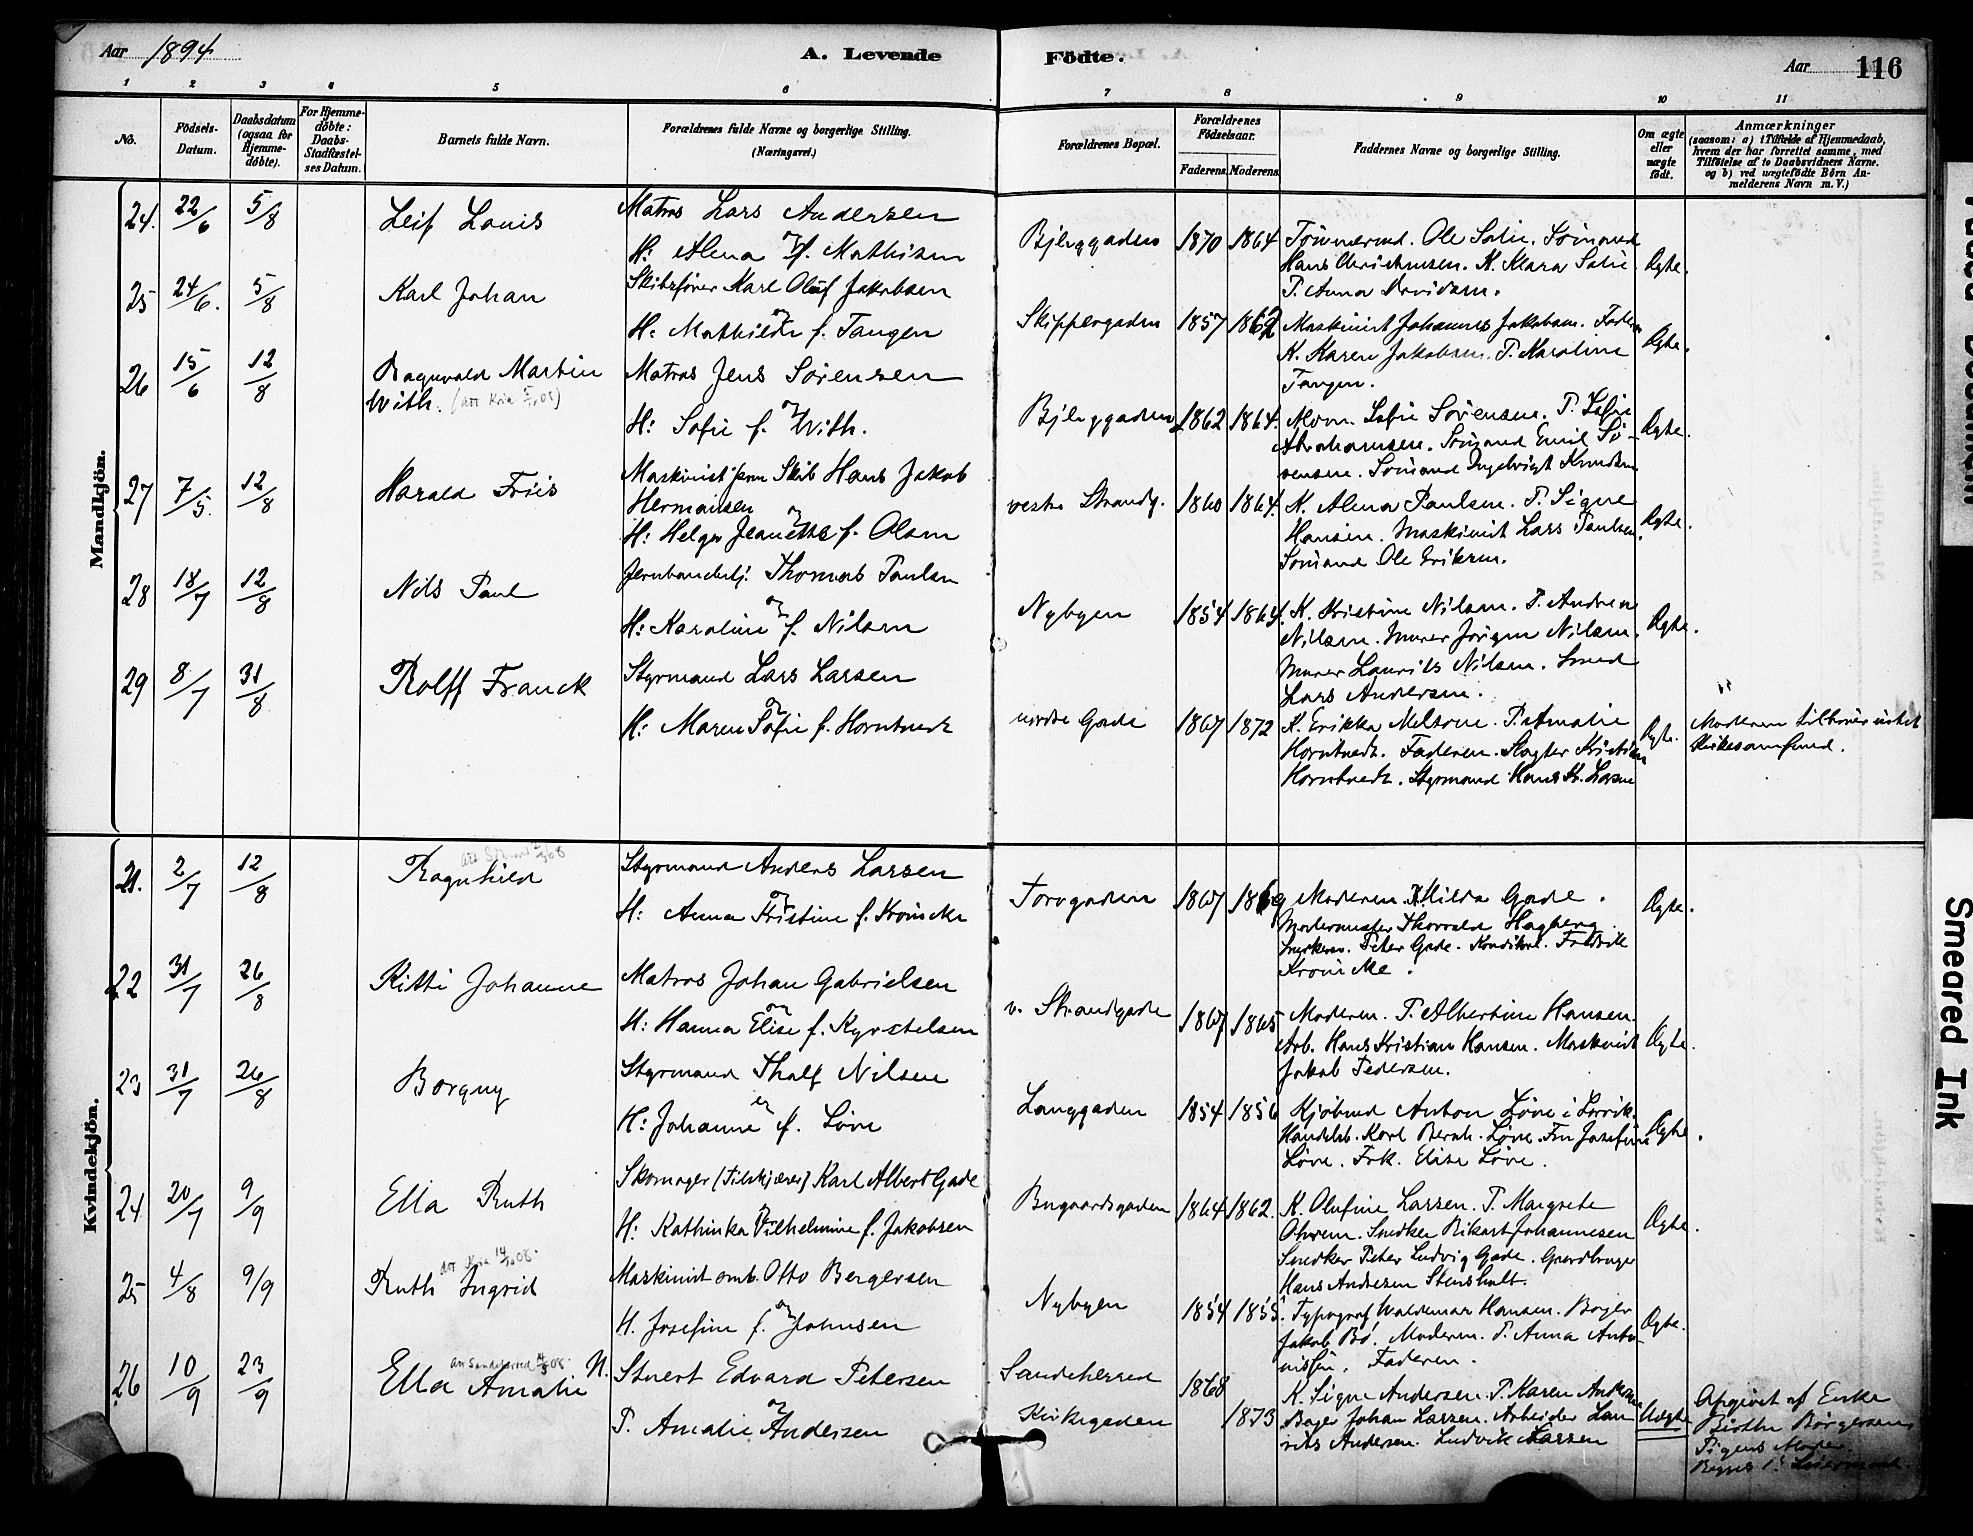 Aar 1894
A. Levende Födte.
Aar 116
1 2 3 4 5 6 7 8 9 10 11
No.
Födsels-Datum.
Daabsdatum (ogsaa for Hjemme-döbte).
For Hjemme-döbte: Daabs-Stadfæstel-ses Datum.
Barnets fulde Navn.
Forældrenes fulde Navne og borgerlige Stilling. (Næringsvei.)
Forældrenes Bopæl.
Forældrenes Födselsaar.
Faderens. Moderens.
Faddernes Navne og borgerlige Stilling.
Om ægte eller uægte födt.
Anmærkninger
(saasom: a) i Tilfælde af Hjemmedaab, hvem der har forrettet samme, med Tilföielse af to Daabsvidners Navne, og b) ved uægtefödte Börn An-melderens Navn m. V.)
Mandkjön.
24. 22/6 5/8 Leif Louis
Matros Lars Andersen
og
H: Alena f. Mathisen
Bjeleggaden 1870 1864
Ole Solie. Sömand
Hans Christensen. K. Klara Solie
P. Anna Davidsen.
Ægte.
25 24/6. 5/8 Karl Johan
Skibsförer Karl Oluf Jakobsen
og
H: Mathilde f. Tangen
Skippergaden 1857 1862
Maskinist Johannes Jakobsen. Faderen
K. Karen Jakobsen. P. Karoline
Tangen.
Ægte.
26 15/6 12/8 Ragnvald Martin
With.
Matros Jens Sörensen
og
H: Sofie f. With.
Bjeleggaden 1862 1864.
Mom. Sofie Sörensen. P. Sofie
Abrahamsen. Sömand Emil Sö-
rensen. Sömand Ingebrigt Knudsen
Ægte.
27 7/5. 12/8 Harald Friis
Maskinist paa Skib Hans Jakob
Hermansen
og
H: Helga Jeanette f. Olsen
vestre Strandg. 1860 1864.
K. Alena Paulsen. P. Signe
Hansen. Maskinist Lars Paulsen.
Sömand Ole Eriksen.
Ægte.
28 18/7 12/8 Nils Paul
Jernbanebetj. Thomas Paulsen
og
H: Karoline f. Nilsen
Nybyen 1854 1864.
K. Kristine Nilsen. P. Andrene
Nilsen. Murer Jörgen Nilsen.
Murer Laurits Nilsen. Smed
Lars Andersen.
Ægte.
29 8/7 31/8 Rolff Franck
Styrmand Lars Larsen
og
H: Maren Sofie f. Horntvedt
nordre Gade 1867 1872
K. Erikka Melsom. P. Amalie
Horntvedt. Faderen. Slagter Kristian
Horntvedt. Styrmand Hans Kr. Larsen
Ægte.
Moderen
Kirkesamfund.
Kvindekjön.
21. 2/7 12/8 Ragnhild
Styrmand Anders Larsen
og
H: Anna Kristine f. Krönicke
Torvgaden 1867 1869
Moderen. Milda Gade.
Thorvald Hagberg.
Peter Gade. Konditor. Fredrik
Krönicke.
Ægte.
22 31/7 26/8 Kitti Johanne
Matros Johan Gabrielsen
og
H: Hanna Elise f. Kyrstelsen
v. Strandgade 1867 1865
Moderen. P. Albertine Hansen.
Arb. Hans Kristian Hansen. Maskinist
Jakob Pedersen.
Ægte.
23 31/7 26/8 Borgny
Styrmand Thalf Nilsen
og
H: Johanne f. Löve
Langgaden 1854 1856
Kjöbmd Anton Löve i Larvik.
Handelsb. Karl Bernh. Löve. Fru Josefine
Löve. Frk. Elise Löve.
Ægte.
24 20/7 9/9 Ella Ruth
Skomager (Tilskjærer) Karl Albert Gade
og
H: Kathinka Vilhelmine f. Jakobsen
Bugaardsgaden 1864 1862.
K. Olufine Larsen. P. Margrete
Snedker Rikart Johannesen
Snedker Peter Ludvig Gade. Gaardbruger
Hans Andresen Stensholt.
Ægte.
25 4/8 9/9 Ruth Ingrid
att Kria 14/10 08.
Maskinist omb. Otto Bergersen
og
H. Josefine f. Johnsen
Nybyen 1854 1855.
Typograf Waldemar Hansen. Bager
Jakob Bö. Moderen. P. Anna Anto-
nissen. Faderen.
Ægte.
26 10/9 23/9 Ella Amalie N.
Stuert Edvard Petersen
og
P. Amalie Andersen
Sandeherred 1868
Kirkegaden 1873
K. Signe Andersen. P. Karen Andersen
Bager Johan Larsen. Arbeider Lau-
rits Andersen. Ludvik Larsen
Uægte
Opgivet af Enke
Börgersen
Pigens Moder.
Tired Document
Smeared Ink